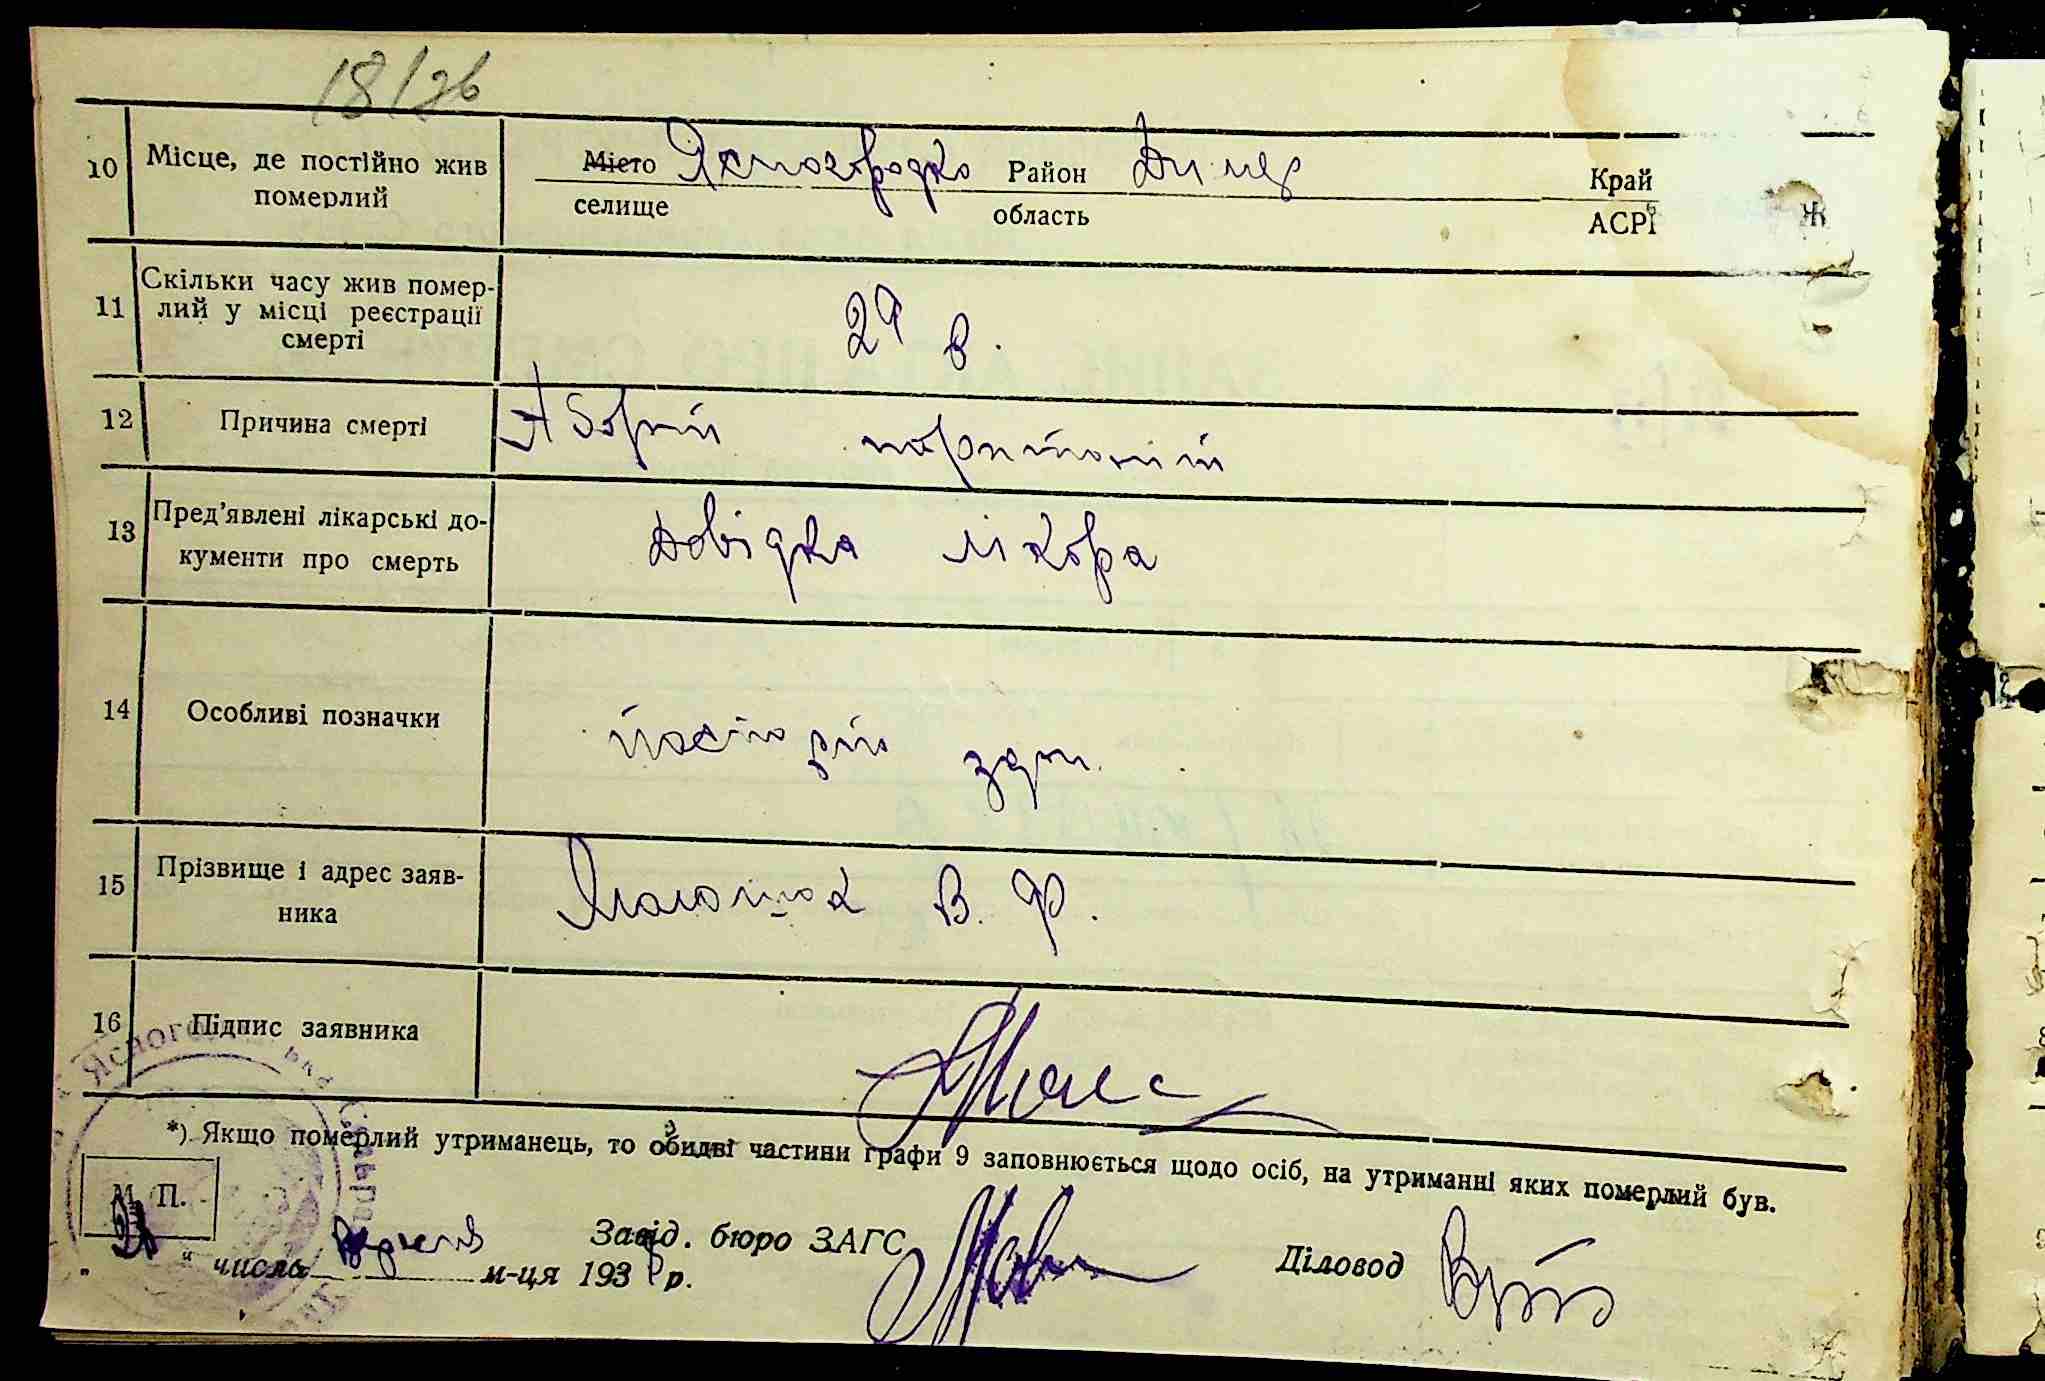 18/26
10 Місце, де постійно жив померлий
Місто Ясногородка Район Димер Край
селище область АСРР
Ж
11 Скільки часу жив помер-
лий у місці реєстрації
смерті
29 в.
12 Причина смерті
Аборт
13 Пред'явлені лікарські до-
кументи про смерть
Довідка лікара
14 Особливі позначки
паспорт
15 Прізвище і адрес заяв-
ника
В. Ф.
16 Підпис заявника
*) Якщо померлий утриманець, то обидві частини графи 9 заповнюється щодо осіб, на утриманні яких померлий був.
М. П.
„ 21 “ числа м-ця 193 р.
Завід. бюро ЗАГС
Діловод